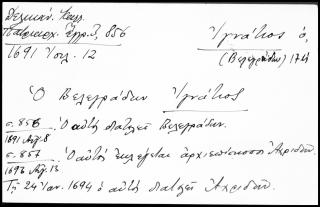 Δελικάν. Καλλ.
Πατριαρχ. Έγγρ. Γ, 856
1691 Ιουλ. 12
Ιγνάτιος ὁ,
(Βελεγράδων) 17
Ὁ Βελεγράδων Ἰγνάτιος
σ. 856
1691 Αὐγ. 8
Ὁ αὐτὸς Βελεγράδων.
σ. 857
1693 Αὐγ. 13
Ὁ αὐτὸς ἐκλέγεται ἀρχιεπίσκοπος Ἀχριδῶν
Τῇ 24 Ἰαν. 1694 ὁ αὐτὸς Ἀχριδῶν.